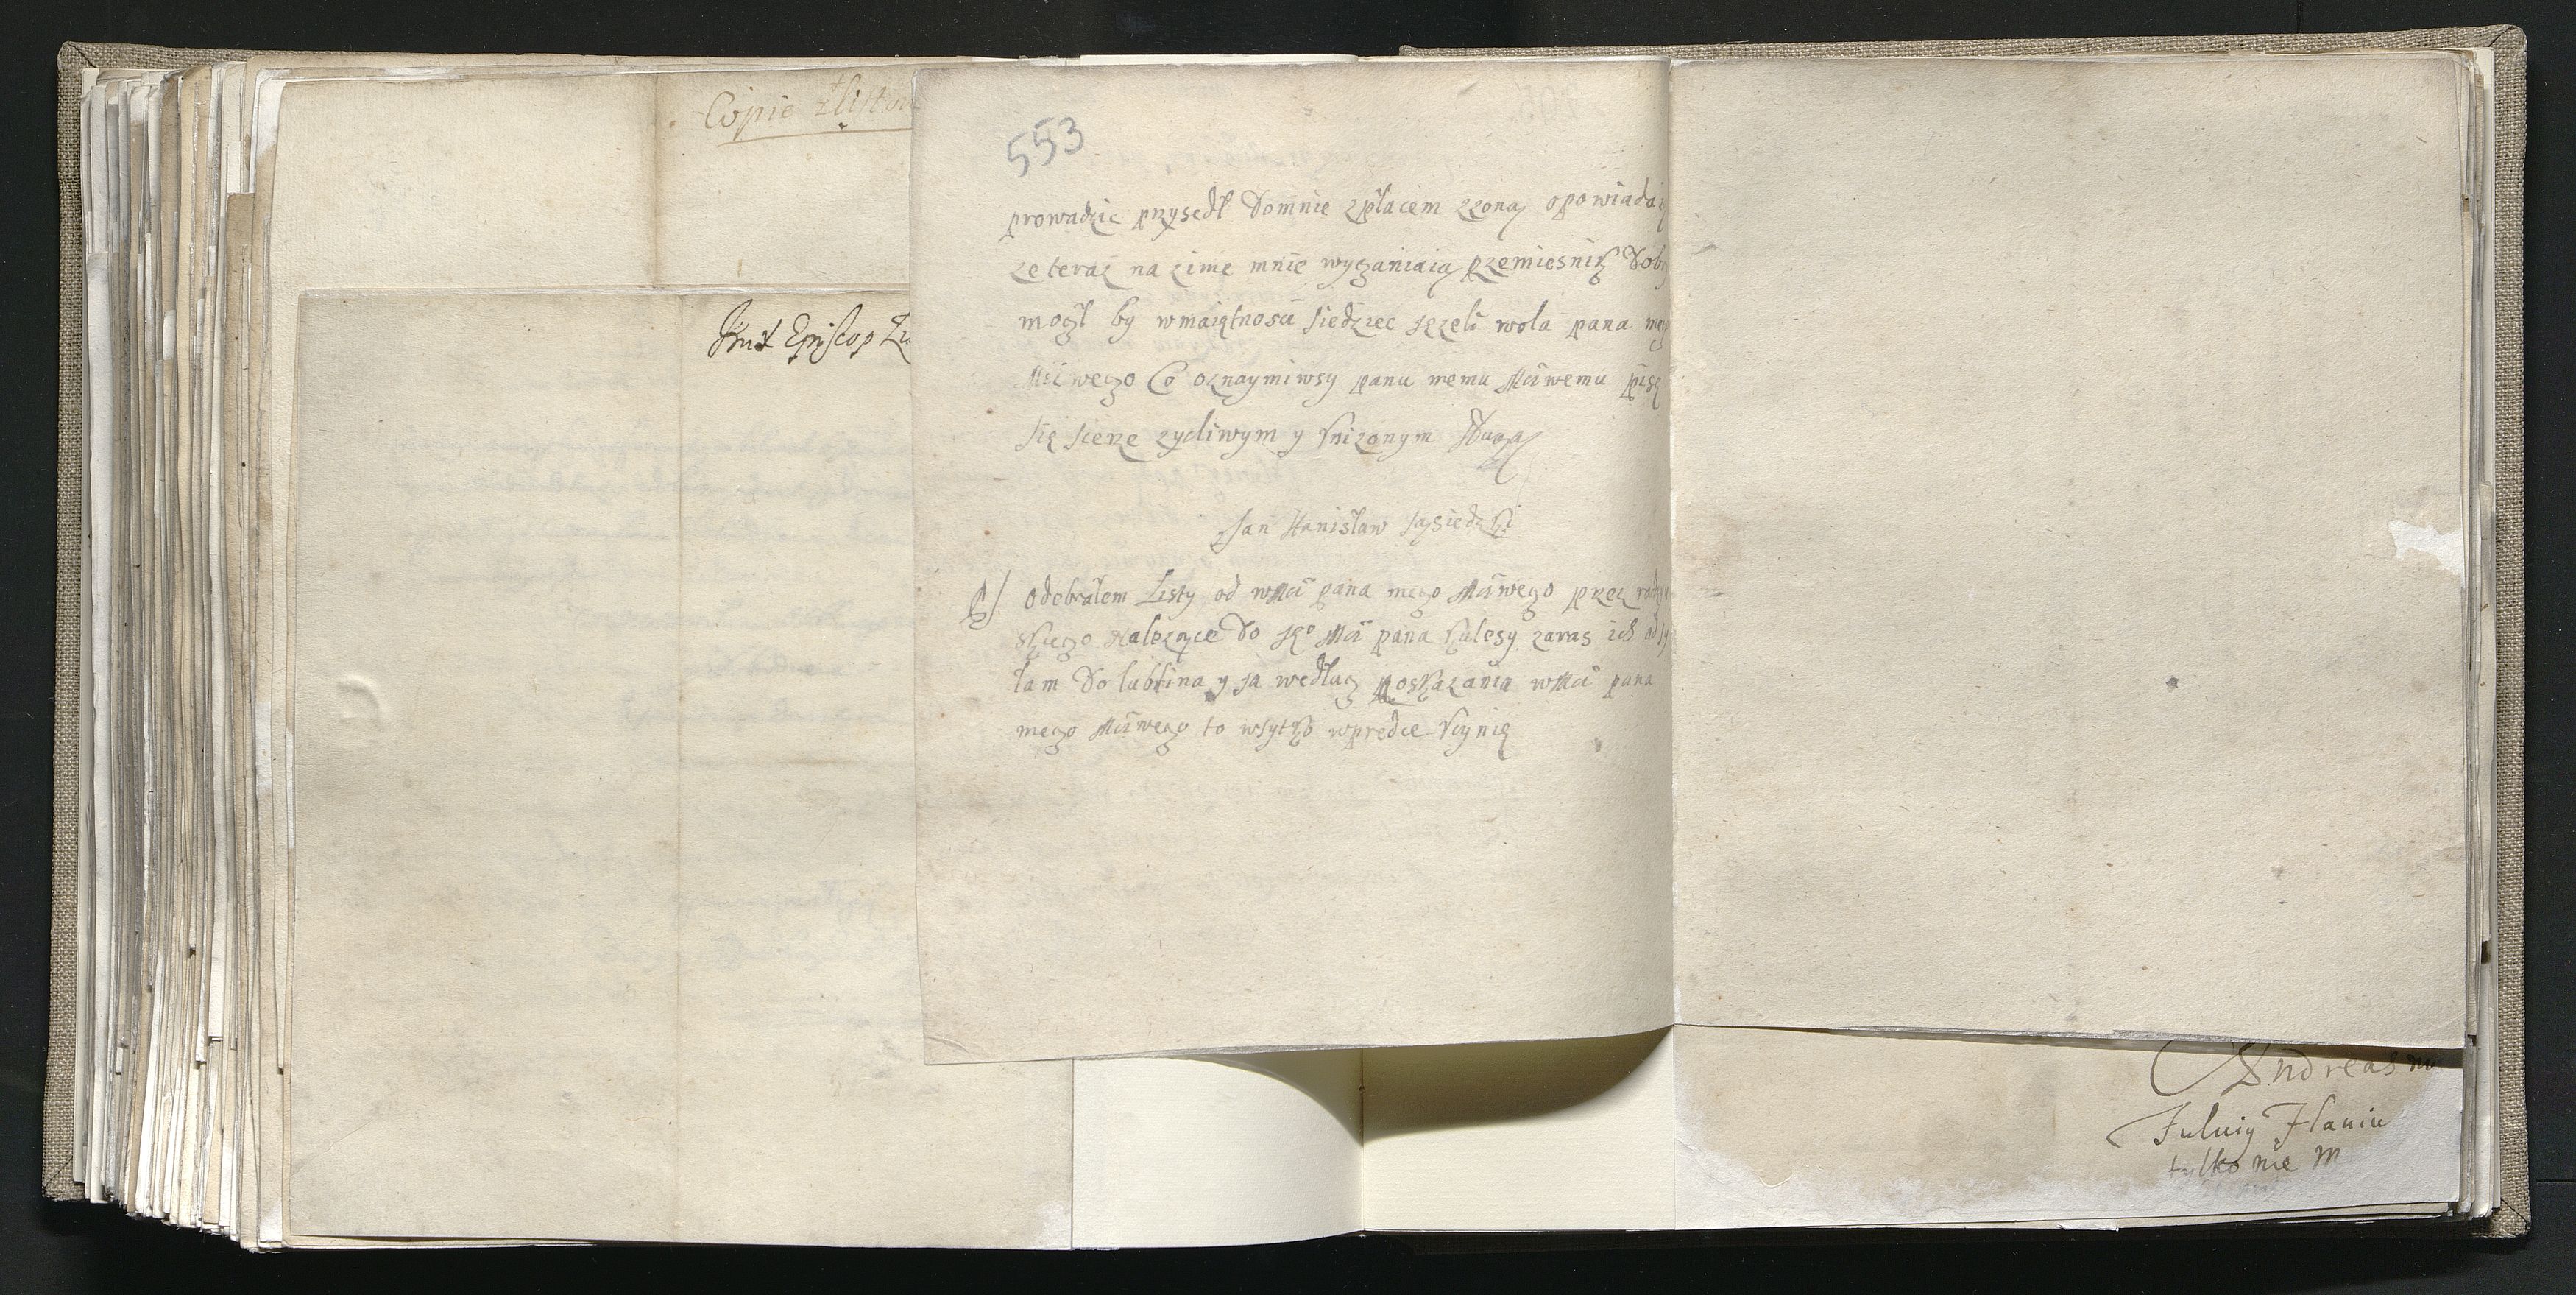 Copie z listow
Episcop
553
prowadzic przysedł Domnie zpłacem zzoną opowiada
ze teraz na zime mnie wyganiaią rzemiesnik Dobr
mogł by wmaiętnosci siedziec jezeli wola pana meg
Mciwego Co oznaymiwsy panu memu Mciwemu pisę
się sczerze zycliwym y Vnizonym Sługą
Jan Stanisław
Ps/ Odebrałem Listy od wMci pana mego Mciwego przez
skiego nalezące Do Jeo Mci pana Kulesy zaras ich odsy
łam Do lublina y Ja według poskazania wMci pana
mego Mciwego to wsytko wpredce Vcynię
Andreas
Fulvij Flaviu
tylko nie M